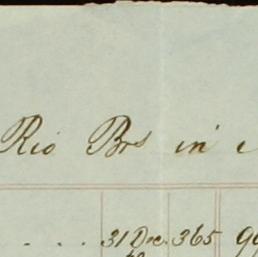 Rio Brs in
. . . . 31 Dec. 365 99